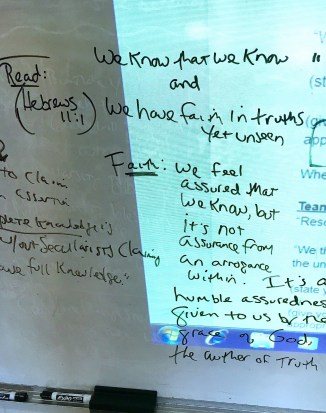 We Know that we Know
and
Read:
(Hebrews
11:1)
We have faith in truths
yet unseen
to claim
Knowledge is
w/out Secularists Claiming
full Knowledge."
Faith: We feel
assured that
we know, but
it's not
assurance from
an arrogance
within. It's a
humble assuredness
given to us by the
grace of God,
the author of Truth
"W
(st
app
Whe
Team
"Reso
"We th
the un
(state y
EXPO